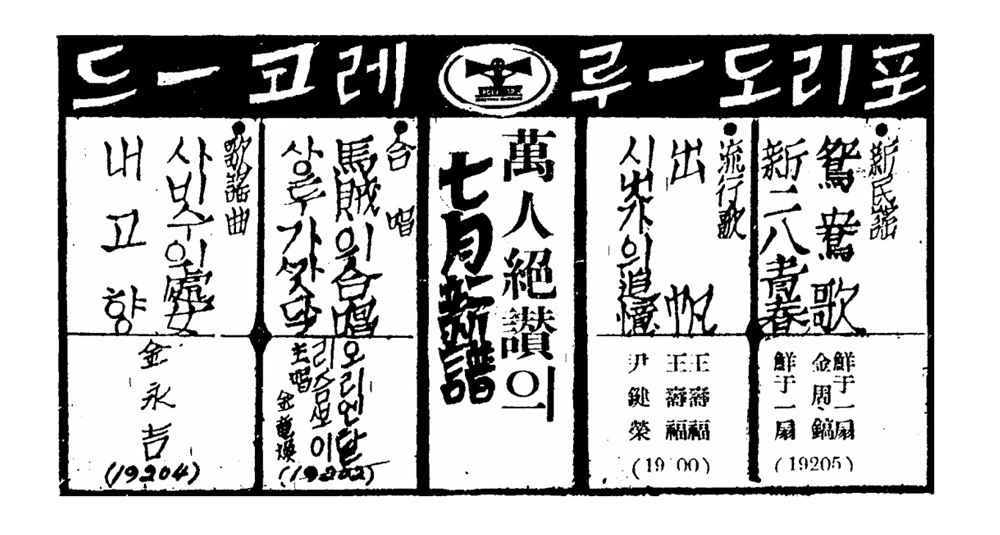 포리도ー루
레코ー드
新民謠
鴛鴦歌
新二八靑春
鮮于一扇
金周鎬
鮮于一扇
(19205)
流行歌
出帆
시냇가의追憶
王壽福
王壽福
尹鍵榮
(19 00)
萬人絕讚의
七月新譜
合唱
馬賊의合唱
오리엔탈
리듬보이
主唱 金龍煥
(19202)
歌謠曲
사비수의處女
내고향
金永吉
(19204)